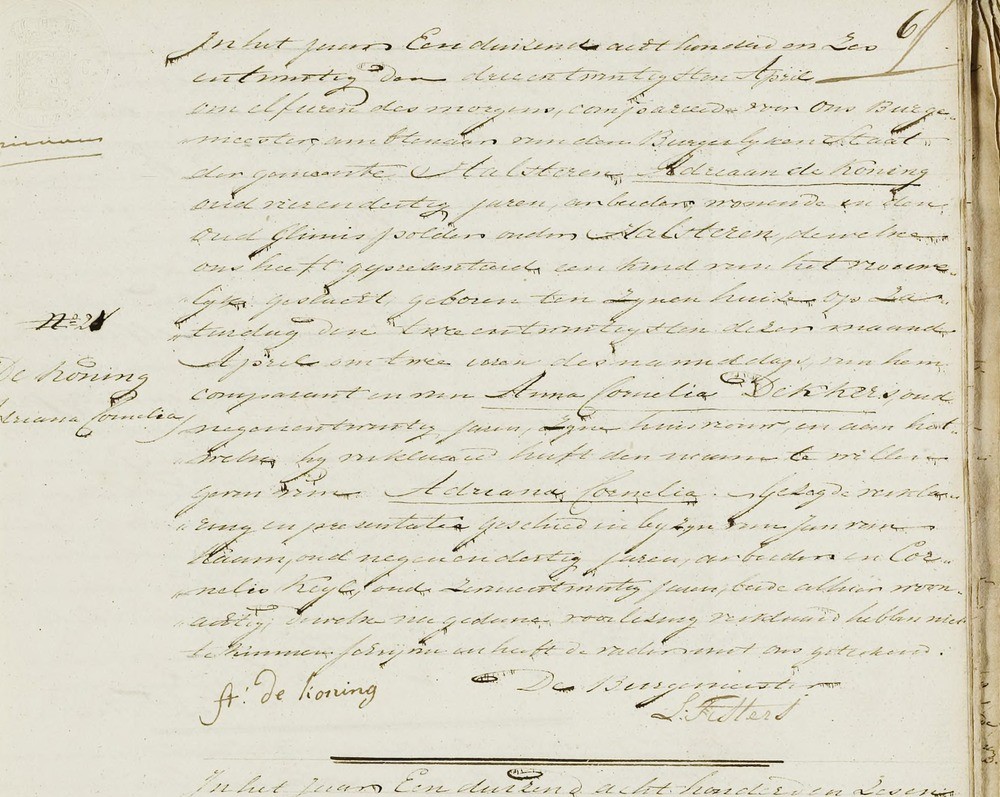 6
In het jaar Een duizend acht honderd en Zes
entwintig den drieentwintigsten April
om elf uren des morgens, compareerde voor Ons Burge-
meester, ambtenaar van den Burgerlyken Staat
der gemeente Halsteren, Adriaan de Koning
oud vierendertig jaren, arbeider, wonende in den
Oud Glimes polder onder Halsteren, dewelke
ons heeft gepresenteerd een kind van het vrouwe-
lyk geslacht, geboren ten zynen huize op Za-
turdag den tweeentwintigsten dezer maand
April om twee uren des namiddags, van hem
comparant en van Anna Cornelia Dekkers, oud
negenentwintig jaren, zyne huisvrouw, en aan het
welk hy verklaard heeft den naam te willen
geven van Adriana Cornelia. Gezegde verkla-
ring en presentatie geschied in byzyn van Jan van
Haam, oud negenendertig jaren, arbeider en Cor-
nelis Keyl, oud zevenentwintig jaren, beide alhier woon-
achtig, dewelke na gedane voorlezing verklaard hebben niet
te kunnen schryven en heeft de vader met ons geteekend.
No 21
De Koning
Adriana Cornelia
A: de koning
De Burgemeester
In het Jaar Een duizend acht honderd en Zesen